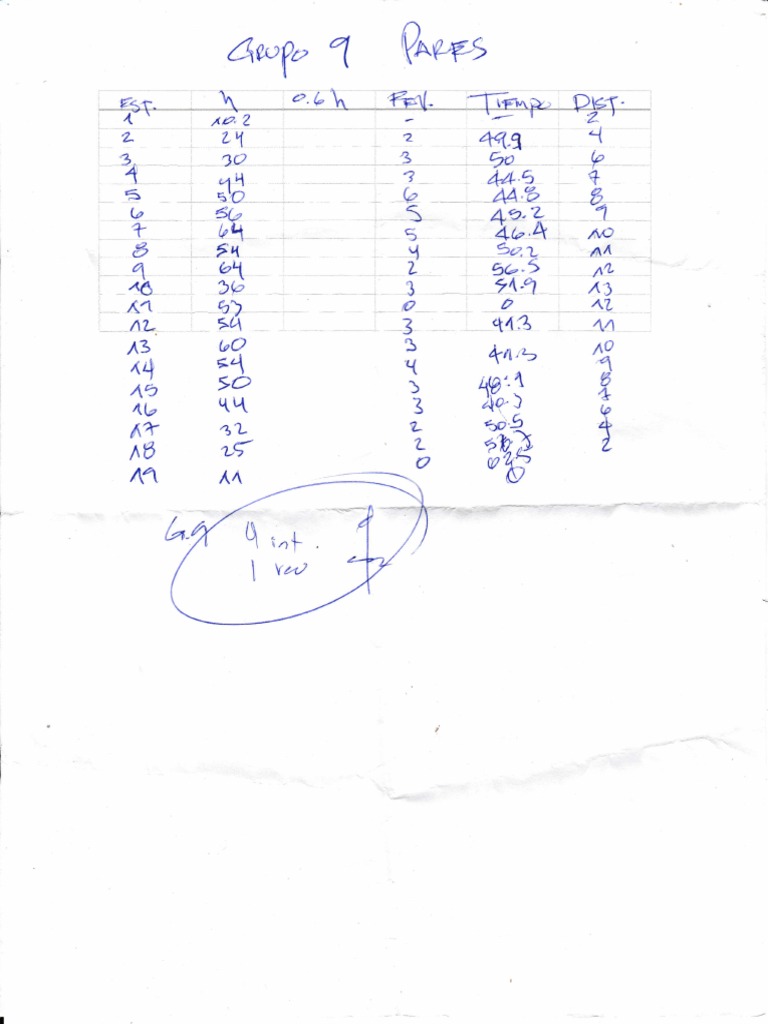 GRUPO 9 PARES
EST. h 0.6h REV. TIEMPO DIST.
1 10.2 - - 2
2 24 2 49.9 4
3 30 3 50 6
4 44 3 44.5 7
5 50 6 44.8 8
6 56 5 45.2 9
7 64 5 46.4 10
8 54 4 50.2 11
9 64 2 56.5 12
10 36 3 51.9 13
11 53 0 0 12
12 54 3 41.3 11
13 60 3 41.3 10
14 54 4 9
15 50 3 48.1 8
16 44 3 40.3 7
17 32 2 50.5 6
18 25 2 4
19 11 0 2
0
G.9 4 int.
1 rev